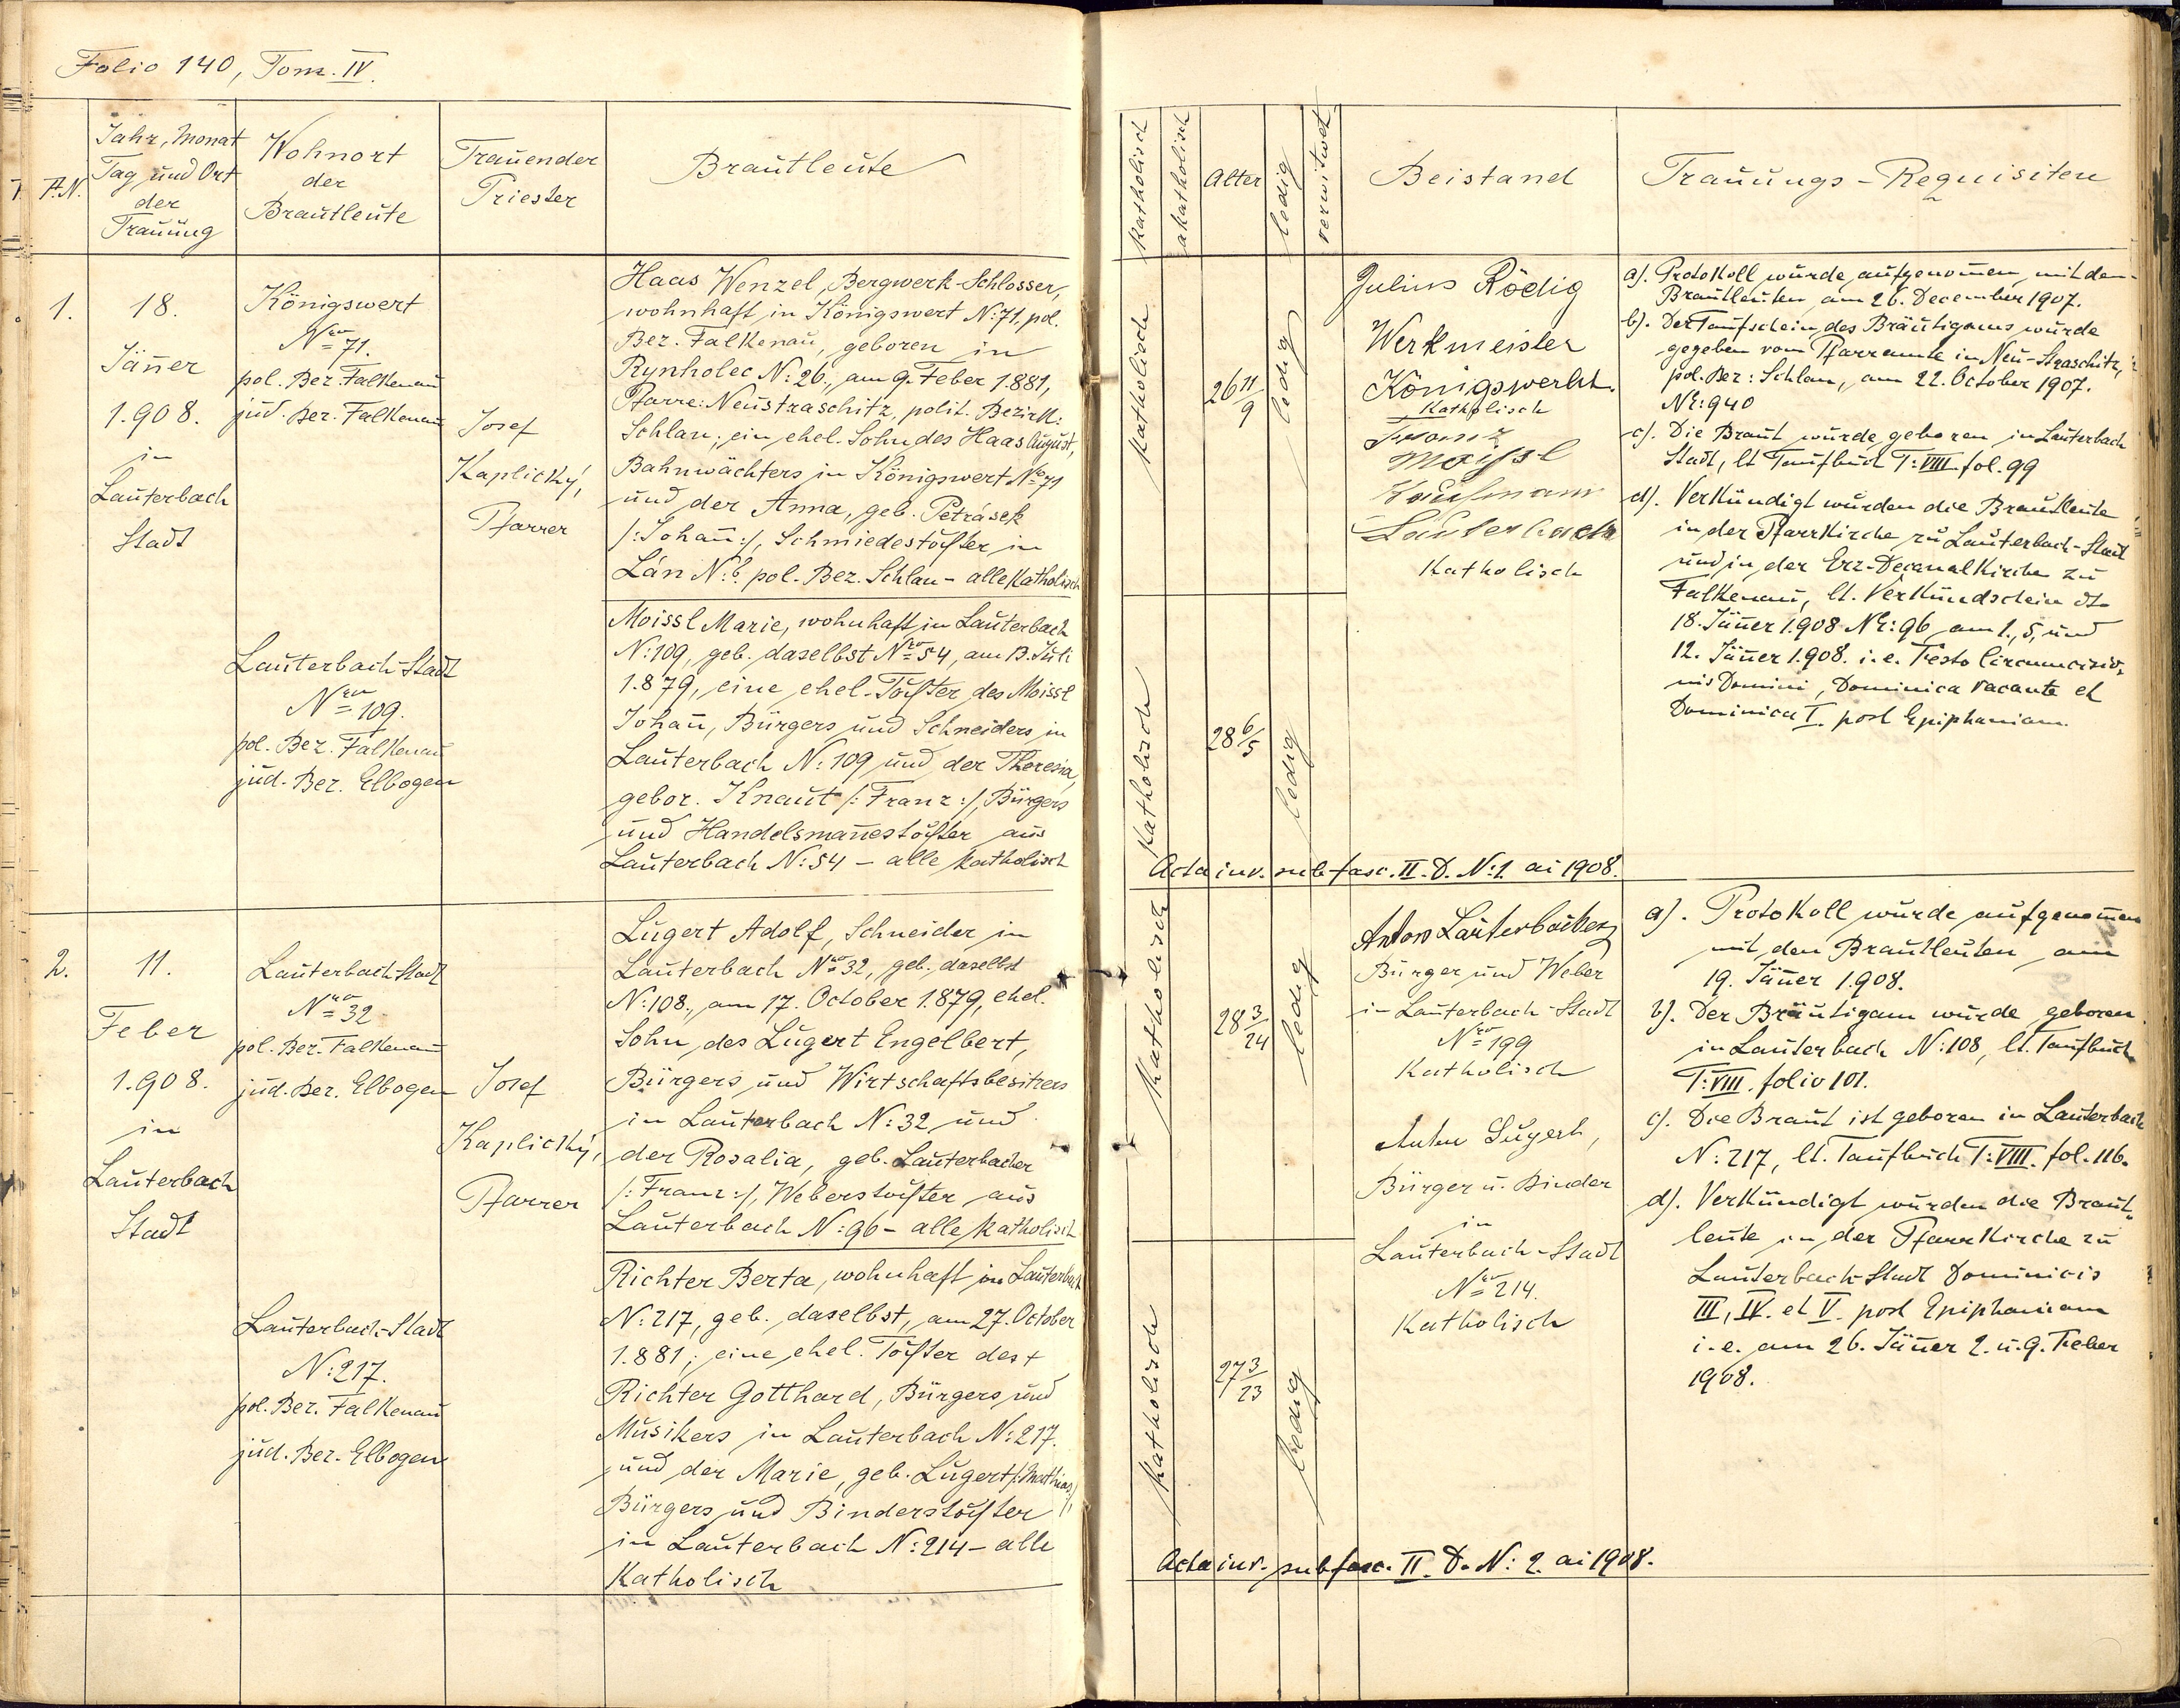 Folio 140, Tom. IV.
A.N.
Jahr, Monat
Tag und Ort
der
Trauung
Wohnort
der
Brautleute
Trauender
Priester
Brautleute
1.
18.
Jäner
1.908.
in
Lauterbach
Stadt
Königswert
Nro 71.
pol. Bez. Falkenau
jud. Bez. Falkenau
Lauterbach-Stadt
Nro 109.
pol. Bez. Falkenau
jud. Bez. Elbogen
Josef
Kaplický,
Pfarrer
Haas Wenzel, Bergwerk-Schlosser,
wohnhaft in Königswert N: 71. pol.
Bez. Falkenau, geboren in
Rynholec N: 26., am 9. Feber 1.881,
Pfarre: Neustraschitz, polit. Bezirk:
Schlan; ein ehel. Sohn des Haas August,
Bahnwächters in Königswert Nro 71
und der Anna, geb. Petrásek
/: Johan̄ :/, Schmiedestochter in
Lán N: 6. pol. Bez. Schlan - alle katholisch
Moissl Marie, wohnhaft in Lauterbach
N: 109, geb. daselbst Nro 54, am 13. Juli
1.879, eine ehel. Tochter des Moissl
Johan̄, Bürgers und Schneiders in
Lauterbach N: 109 und der Theresia,
gebor. Knaut /: Franz :/, Bürgers
und Handelsman̄estochter aus
Lauterbach N: 54 - alle katholisch
2.
11.
Feber
1.908.
in
Lauterbach
Stadt
Lauterbach Stadt
Nro 32
pol. Bez. Falkenau
jud. Bez. Elbogen
Lauterbach-Stadt
N: 217.
pol. Bez. Falkenau
jud. Bez. Elbogen
Josef
Kaplický,
Pfarrer
Lugert Adolf, Schneider in
Lauterbach Nro 32, geb. daselbst
N: 108., am 17. October 1.879, ehel.
Sohn des Lugert Engelbert,
Bürgers und Wirtschaftsbesitzers
in Lauterbach N: 32 und
der Rosalia, geb. Lauterbacher
/: Franz :/, Weberstochter aus
Lauterbach N: 96 - alle katholisch
Richter Berta, wohnhaft in Lauterbach
N: 217, geb. daselbst, am 27. October
1.881; eine ehel. Tochter des +
Richter Gotthard, Bürgers und
Musikers in Lauterbach N: 217.
und der Marie, geb. Lugert /: Mathias :/,
Bürgers und Binderstochter
in Lauterbach N: 214 - alle
Katholisch
katholisch
akatholisch
Alter
ledig
verwitwet
Beistand
Trauungs-Requisiten
katholisch
26 11/9
ledig
katholisch
28 6/5
ledig
Julius Rödig
Werkmeister
Königswerth.
Katholisch
Franz
Moissl
Kaufmann
Lauterbach
Katholisch
a). Protokoll wurde aufgenom̄en mit den
Brautleuten am 26. December 1907.
b). Der Taufschein des Bräutigams wurde
gegeben vom Pfarramte in Neu-Straschitz,
pol. Bez: Schlan, am 22. October 1907.
Nr: 940
c). Die Braut wurde geboren in Lauterbach
Stadt, lt Taufbuch T: VIII. fol. 99
d). Verkündigt wurden die Brautleute
in der Pfarrkirche zu Lauterbach-Stadt
und in der Erz-Decanalkirche zu
Falkenau, lt. Verkündschein dto
18. Jäner 1.908 Nr: 96 am 1., 5, und
12. Jäner 1.908. i. e. Festo Circumcisio-
nis Domini, Dominica vacante et
Dominica I. post Epiphaniam.
Acta inv. sub fasc. II. D. N: 1 ai 1908.
katholisch
28 3/24
ledig
katholisch
27 3/23
ledig
Anton Lauterbacher
Bürger und Weber
in Lauterbach-Stadt
Nro 199
Katholisch
Anton Lugert,
Bürger u. Binder
in
Lauterbach-Stadt
Nro 214.
Katholisch
a). Protokoll wurde aufgenom̄en
mit den Brautleuten am
19. Jäner 1.908.
b). Der Bräutigam wurde geboren
in Lauterbach N: 108, lt. Taufbuch
T: VIII. folio 101.
c). Die Braut ist geboren in Lauterbach
N: 217, lt. Taufbuch T: VIII. fol. 116.
d). Verkündigt wurden die Braut-
leute in der Pfarrkirche zu
Lauterbach-Stadt Dominicis
III, IV. et V. post Epiphaniam
i. e. am 26. Jäner 2. u. 9. Feber
1908.
Acta inv. sub fasc. II. D. N: 2. ai 1908.